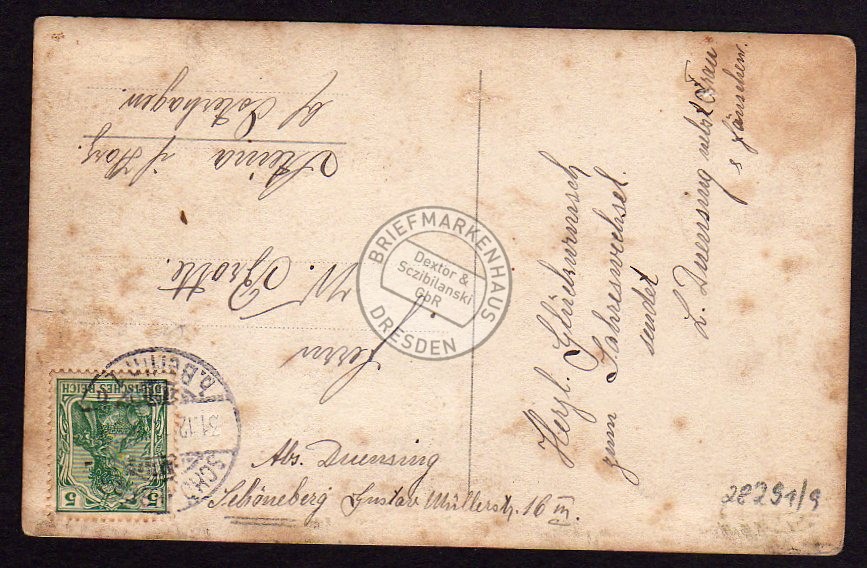 Herzl. Glückwunsch
zum Jahreswechsel.
sendet
L. Duensing nebst Frau
s Hänschen.
Herrn
W. Grotte.
Steina i/ Harz.
b/ Osterhagen.
Abs. Duensing
Schöneberg Gustav Müllerstr. 16 III.
DEUTSCHES REICH
5 5
31.12
b. Berlin
BRIEFMARKENHAUS
Dextor &
Sczibilanski
GbR
DRESDEN
28291/9